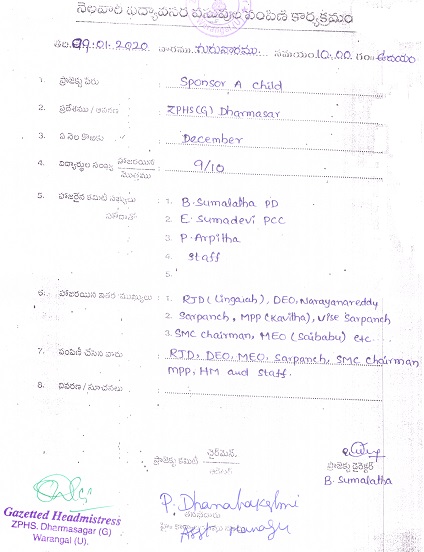 నెలవారి విద్యావసర వస్తువుల పంపిణి కార్యక్రమం
తేది: 09.01.2020 వారము గురువారము సమయం 10.00 గం: ఉదయం
1. ప్రాజెక్టు పేరు : Sponsor A child
2. ప్రదేశము / ఆవరణ : ZPHS(G) Dharmasar
3. ఏ నెల కొరకు : December
4. విద్యార్థుల సంఖ్య హాజరయిన / మొత్తము : 9/10
5. హాజరైన కమిటీ సభ్యులు : 1. B. Sumalatha PD
2. E. Sumadevi PCC
3. P. Arpitha
4. Staff
5.
6. హాజరయిన ఇతర ముఖ్యులు : 1. RJD (Lingaiah), DEO, Narayanareddy
2. Sarpanch, MPP (Kavitha), Vise Sarpanch
3. SMC chairman, MEO (Saibabu) etc...
7. పంపిణీ చేసిన వారు : RJD, DEO, MEO, Sarpanch, SMC Chairman
MPP, HM and Staff.
8. వివరణ / సూచనలు :
ప్రాజెక్టు కమిటీ చైర్మెన్
ప్రాజెక్టు డైరెక్టర్
B. Sumalatha
Gazetted Headmistress
ZPHS. Dhermasagar (G)
Warangal (U).
P. Dhanalakshmi